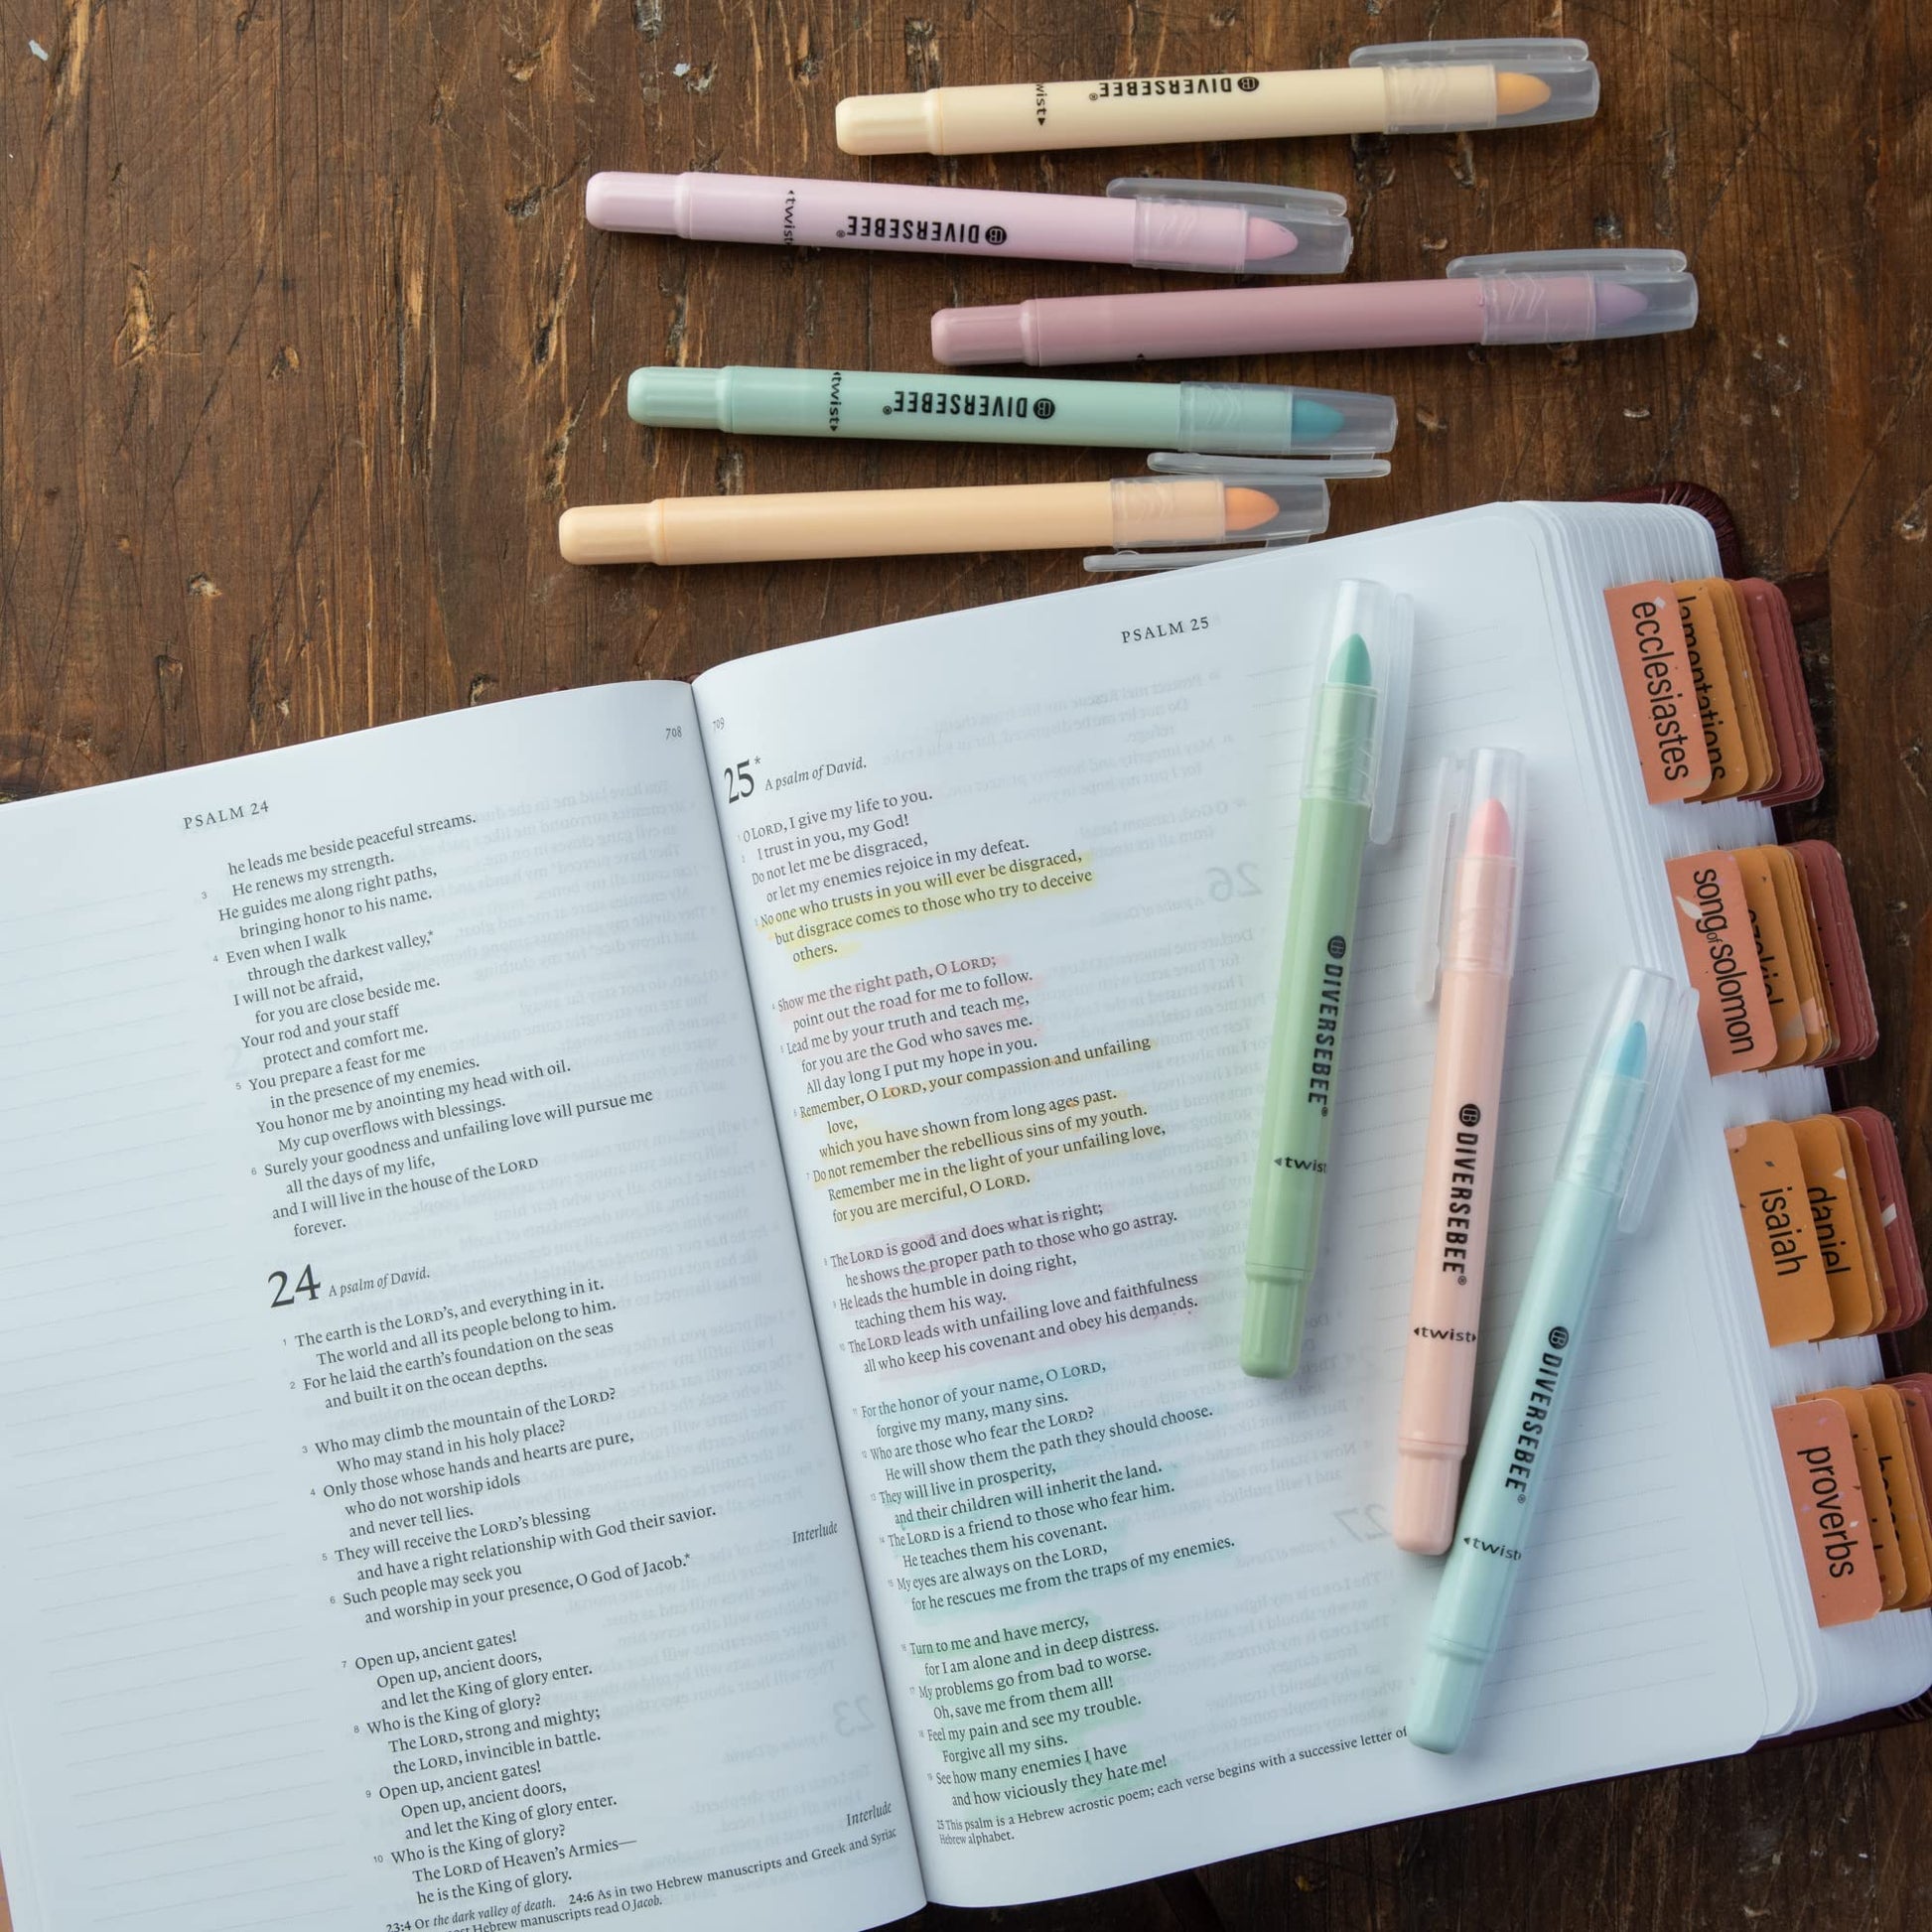 DIVERSEBEE®
twist
DIVERSEBEE®
twist
DIVERSEBEE®
PSALM 24
708
he leads me beside peaceful streams.
3 He renews my strength.
He guides me along right paths,
bringing honor to his name.
4 Even when I walk
through the darkest valley,*
I will not be afraid,
for you are close beside me.
Your rod and your staff
protect and comfort me.
5 You prepare a feast for me
in the presence of my enemies.
You honor me by anointing my head with oil.
My cup overflows with blessings.
6 Surely your goodness and unfailing love will pursue me
all the days of my life,
and I will live in the house of the LORD
forever.
24 A psalm of David.
1 The earth is the LORD's, and everything in it.
The world and all its people belong to him.
2 For he laid the earth's foundation on the seas
and built it on the ocean depths.
3 Who may climb the mountain of the LORD?
Who may stand in his holy place?
4 Only those whose hands and hearts are pure,
who do not worship idols
and never tell lies.
5 They will receive the LORD's blessing
and have a right relationship with God their savior.
6 Such people may seek you
and worship in your presence, O God of Jacob.*
Interlude
7 Open up, ancient gates!
Open up, ancient doors,
and let the King of glory enter.
8 Who is the King of glory?
The LORD, strong and mighty;
the LORD, invincible in battle.
9 Open up, ancient gates!
Open up, ancient doors,
and let the King of glory enter.
10 Who is the King of glory?
The LORD of Heaven's Armies—
he is the King of glory.
Interlude
23:4 Or the dark valley of death. 24:6 As in two Hebrew manuscripts and Greek and Syriac
Hebrew manuscripts read O Jacob.
709
PSALM 25
25* A psalm of David.
1 O LORD, I give my life to you.
2 I trust in you, my God!
Do not let me be disgraced,
or let my enemies rejoice in my defeat.
3 No one who trusts in you will ever be disgraced,
but disgrace comes to those who try to deceive
others.
4 Show me the right path, O LORD;
point out the road for me to follow.
5 Lead me by your truth and teach me,
for you are the God who saves me.
All day long I put my hope in you.
6 Remember, O LORD, your compassion and unfailing
love,
which you have shown from long ages past.
7 Do not remember the rebellious sins of my youth.
Remember me in the light of your unfailing love,
for you are merciful, O LORD.
8 The LORD is good and does what is right;
he shows the proper path to those who go astray.
9 He leads the humble in doing right,
teaching them his way.
10 The LORD leads with unfailing love and faithfulness
all who keep his covenant and obey his demands.
11 For the honor of your name, O LORD,
forgive my many, many sins.
12 Who are those who fear the LORD?
He will show them the path they should choose.
13 They will live in prosperity,
and their children will inherit the land.
14 The LORD is a friend to those who fear him.
He teaches them his covenant.
15 My eyes are always on the LORD,
for he rescues me from the traps of my enemies.
16 Turn to me and have mercy,
for I am alone and in deep distress.
17 My problems go from bad to worse.
Oh, save me from them all!
18 Feel my pain and see my trouble.
Forgive all my sins.
19 See how many enemies I have
and how viciously they hate me!
25 This psalm is a Hebrew acrostic poem; each verse begins with a successive letter of
Hebrew alphabet.
DIVERSEBEE®
twist
DIVERSEBEE®
twist
DIVERSEBEE®
twist
ecclesiastes
lamentations
song of solomon
isaiah
daniel
proverbs